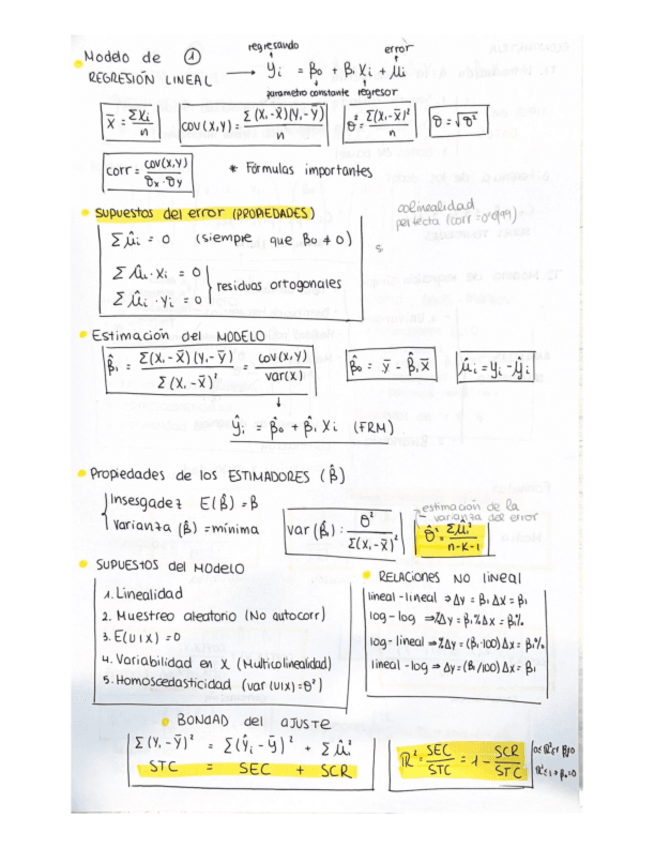 regresando
error
Modelo de ①
REGRESIÓN LINEAL → yᵢ = β₀ + β₁ Xᵢ + μᵢ
parametro constante regresor
X̄ = ΣXᵢ / n
cov(X,Y) = Σ(Xᵢ-X̄)(Yᵢ-Ȳ) / n
θ² = Σ(Xᵢ-X̄)² / n
θ = √θ²
corr = cov(X,Y) / θx · θy
* Fórmulas importantes
SUPUESTOS del error (PROPIEDADES)
colinealidad
perfecta (corr = 0'999)
Σ μ̂ᵢ = 0 (siempre que β₀ ≠ 0)
Σ μ̂ᵢ · Xᵢ = 0
Σ μ̂ᵢ · Yᵢ = 0
residuos ortogonales
Estimación del MODELO
β̂₁ = Σ(Xᵢ-X̄)(Yᵢ-Ȳ) / Σ(Xᵢ-X̄)² = cov(X,Y) / var(X)
β̂₀ = ȳ - β̂₁x̄
μ̂ᵢ = yᵢ - ŷᵢ
ŷᵢ = β̂₀ + β̂₁ Xᵢ (FRM)
Propiedades de los ESTIMADORES (β̂)
Insesgadez E(β̂) = β
Varianza (β̂) = mínima
var(β̂) : θ² / Σ(Xᵢ-X̄)²
estimación de la
varianza del error
θ̂² = Σμ̂ᵢ² / n-K-1
SUPUESTOS del MODELO
1. Linealidad
2. Muestreo aleatorio (No autocorr)
3. E(U|X) = 0
4. Variabilidad en X (Multicolinealidad)
5. Homoscedasticidad (var(U|X)=θ²)
RELACIONES NO lineal
lineal-lineal ⇒ Δy = β₁ΔX = β₁
log-log ⇒ %Δy = β₁%ΔX = β₁%
log-lineal ⇒ %Δy = (β₁·100)ΔX = β₁%
lineal-log ⇒ Δy = (β₁/100)ΔX = β₁
BONDAD del AJUSTE
Σ(Yᵢ-Ȳ)² = Σ(Ŷᵢ-Ȳ)² + Σμ̂ᵢ²
STC = SEC + SCR
R² = SEC / STC = 1 - SCR / STC